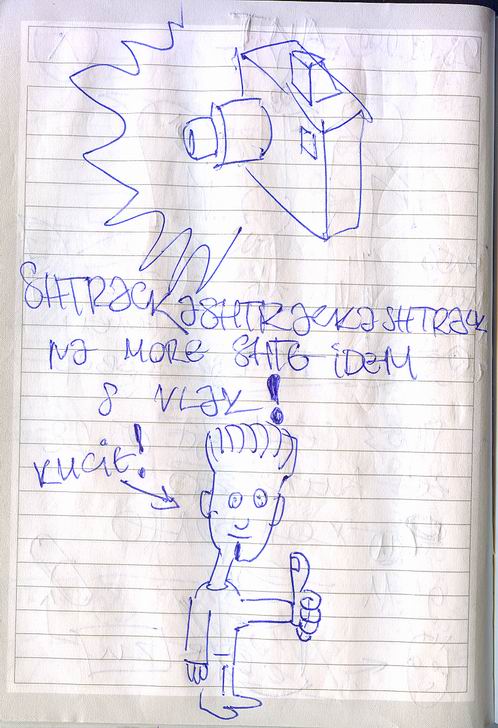 SHTRackaSHTRackaSHTRack
Na MORE SHTE IDEM
S VLaK!
KUCIE!